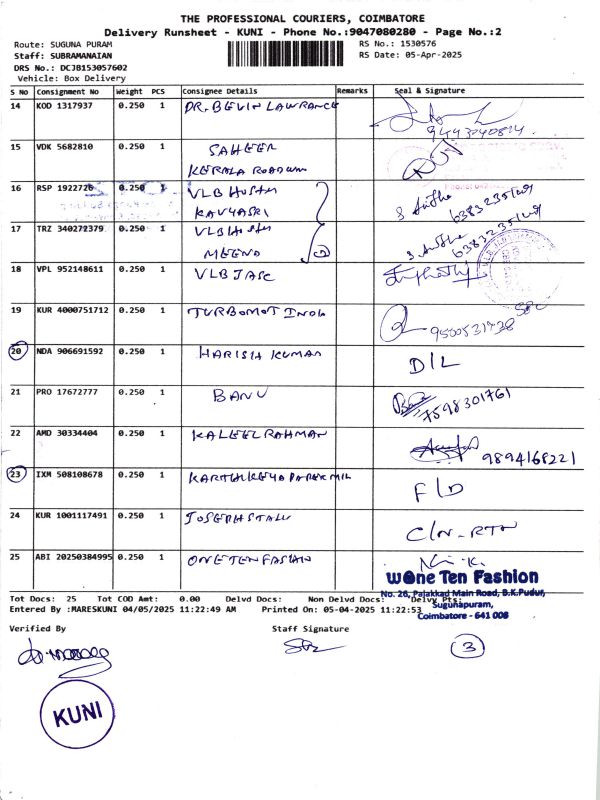 THE PROFESSIONAL COURIERS, COIMBATORE
Delivery Runsheet - KUNI - Phone No.:9047080280 - Page No.:2
Route: SUGUNA PURAM
RS No.: 1530576
Staff: SUBRAMANAIAN
RS Date: 05-Apr-2025
DRS No.: DCJB153057602
Vehicle: Box Delivery
S No Consignment No Weight PCS Consignee Details Remarks Seal & Signature
14 KOD 1317937 0.250 1 DR. BEVIN LAWRANCE
9443740814
15 VDK 5682810 0.250 1 SAHEER
KERALA ROADWAY
16 RSP 1922726 0.250 1 VLB HOSTEL
KAVYASRI
6383235149
17 TRZ 340272379 0.250 1 VLB HOSTEL
MEENA
6383235149
18 VPL 952148611 0.250 1 VLB JASC
19 KUR 4000751712 0.250 1 TURBOMOT INDIA
9500531738
20 NDA 906691592 0.250 1 HARISH KUMAR D/L
21 PRO 17672777 0.250 1 BANU
7598301761
22 AMD 30334404 0.250 1 KALEEL RAHMAN
9894168221
23 IXM 508108678 0.250 1 F/D
24 KUR 1001117491 0.250 1 C/N-RTN
25 ABI 20250384995 0.250 1 ONE TEN FASIAN
One Ten Fashion
No. 26, Palakkad Main Road, B.K.Pudur,
Sugunapuram,
Coimbatore - 641 008
Tot Docs: 25 Tot COD Amt: 0.00 Delvd Docs: Non Delvd Docs: Delvy Pts:
Entered By :MARESKUNI 04/05/2025 11:22:49 AM Printed On: 05-04-2025 11:22:53
Verified By Staff Signature
3
KUNI